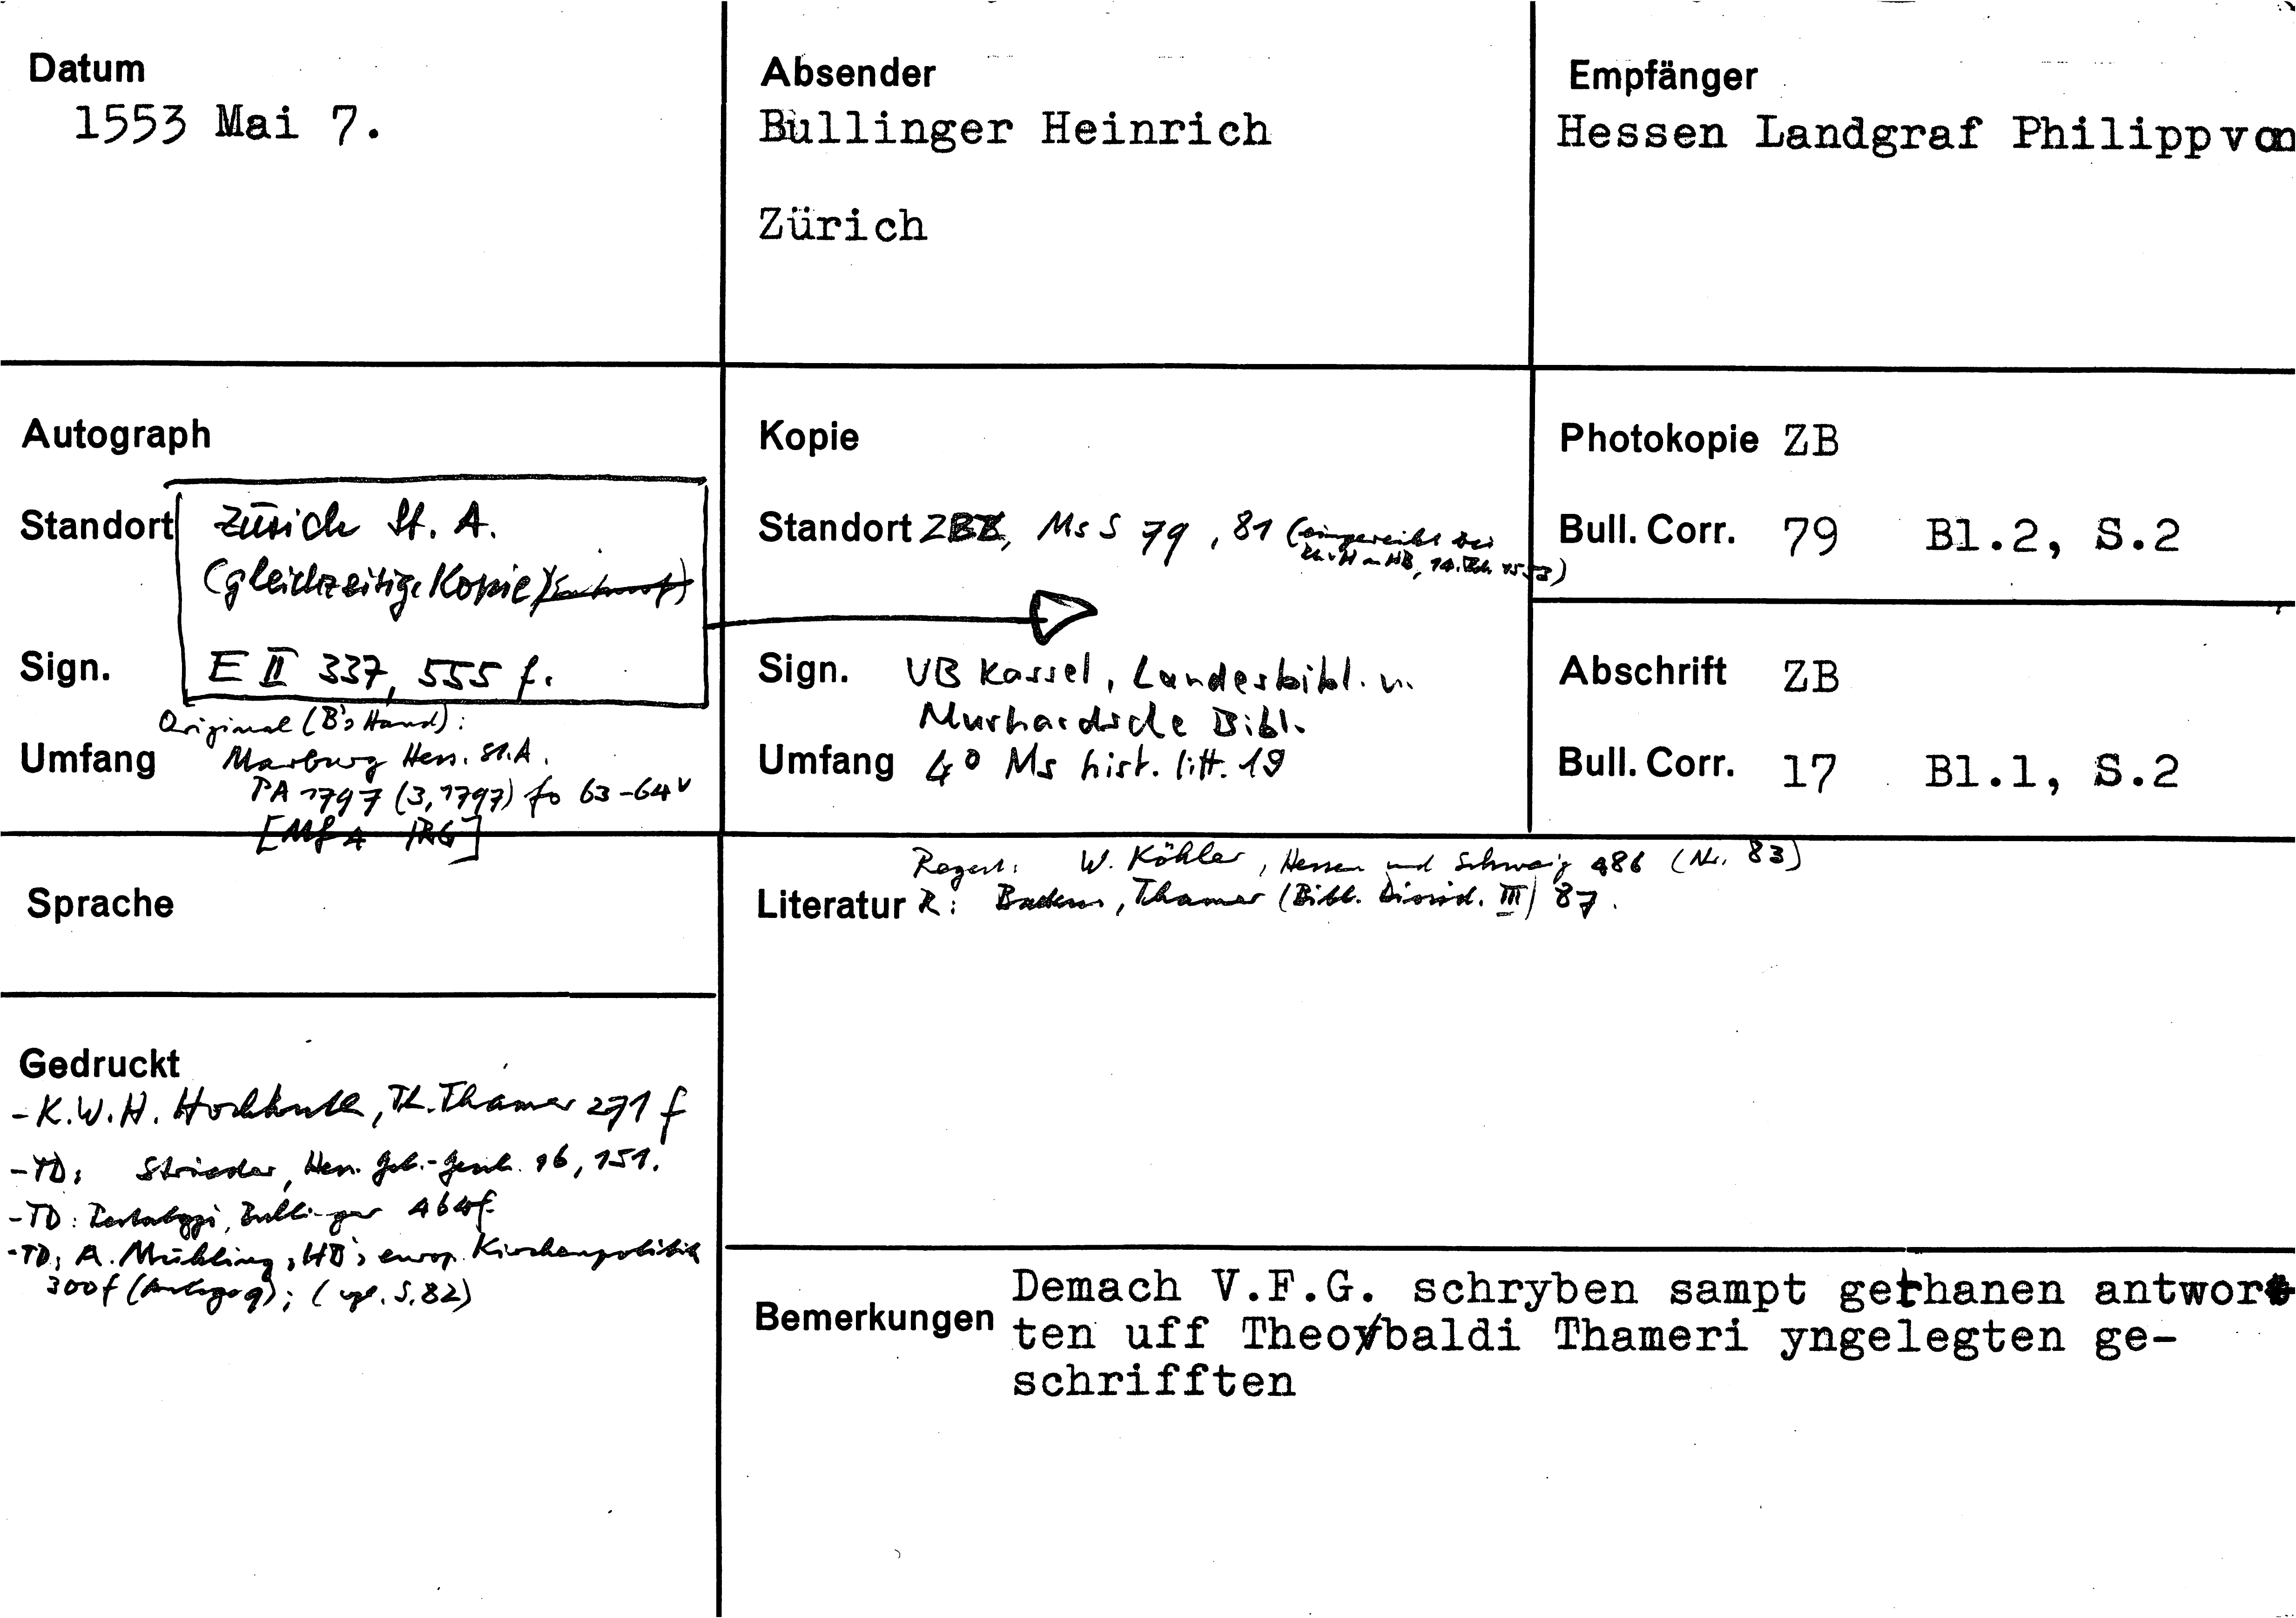 Datum
1553 Mai 7.
Absender
Bullinger Heinrich
Zürich
Empfänger
Hessen Landgraf Philipp von
Autograph
Standort Zürich St. A.
(gleichzeitige Kopie)
Sign. E II 337, 555 f.
Original (B's Hand):
Umfang Marburg Hess. St.A.
PA 1797 (3,1797) fo 63-64v
[Mf A IRG]
Kopie
Standort ZB, Ms S 79, 81 (eingereiht bei
Ph.v.H an HB, 14. 1553)
Sign. UB Kassel, Landesbibl. u.
Murhardsche Bibl.
Umfang 4° Ms hist. litt. 19
Photokopie ZB
Bull. Corr. 79 Bl.2, S.2
Abschrift ZB
Bull. Corr. 17 Bl.1, S.2
Sprache
Regest: W. Köhler, Hessen und Schweiz 486 (Nr. 83)
Literatur R: Thamer (Bibl. Dissid. III) 87.
Gedruckt
- K.W.H. Hochhuth, Th. Thamer 271 f
- TD: Strieder, Hess. Gel.-Gesch. 16, 151.
- TD: Pestalozzi, Bullinger 464f.
- TD: A. Mühling, HB's europ. Kirchenpolitik
300f (Anhang 9); (vgl. S.82)
Bemerkungen
Demach V.F.G. schryben sampt gethanen antwor-
ten uff Theobaldi Thameri yngelegten ge-
schrifften